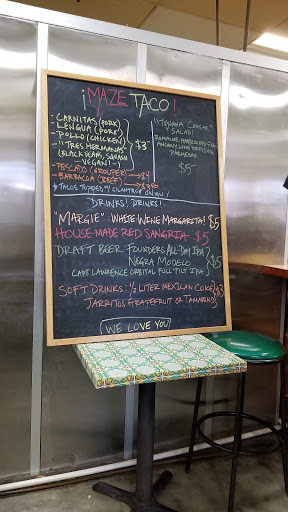 ¡MAZE TACO!
- CARNITAS (PORK)
- LENGUA (PORK)
- POLLO (CHICKEN)
- "TRES HERMANAS"
(BLACK BEANS, SQUASH
- VEGAN! -)
$3
- PESCADO (GROUPER) → $4
- BARBACOA (BEEF) → $3.50
* TACOS TOPPED W/ CILANTRO & ONION!
"TIJUANA CAESAR"
SALAD!
ROMAINE, HARD BOILED EGG
ANCHOVY LIME DRESSING
PARMESAN
$5-
DRINKS! DRINKS!
"MARGIE": WHITE WINE MARGARITA! $5
HOUSE-MADE RED SANGRIA $5
DRAFT BEER: FOUNDERS ALL-DAY IPA
NEGRA MODELO
CAPE LAWRENCE ORBITAL FULL TILT IPA
$5
SOFT DRINKS: 1/2 LITER MEXICAN COKE
JARRITOS GRAPEFRUIT OR TAMARIND
$3
WE LOVE YOU